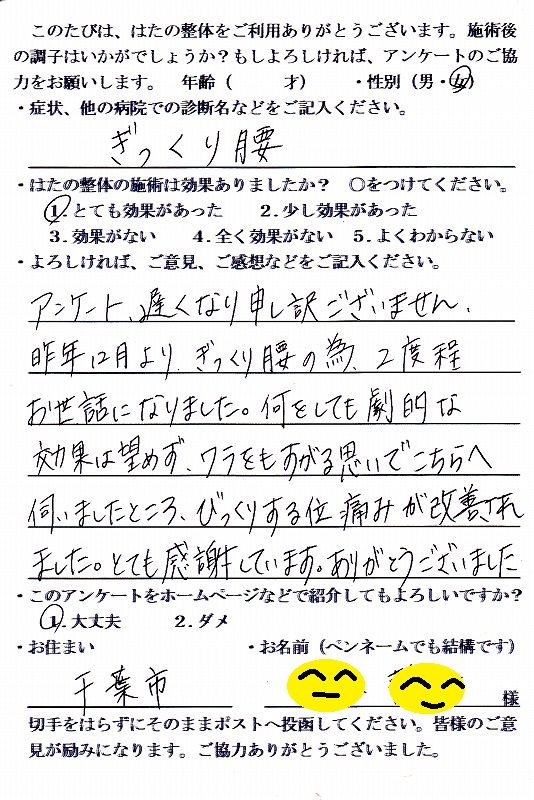 このたびは、はたの整体をご利用ありがとうございます。施術後
の調子はいかがでしょうか？もしよろしければ、アンケートのご協
力をお願いします。　年齢（　　　才）　・性別（男・女）
・症状、他の病院での診断名などをご記入ください。
ぎっくり腰
・はたの整体の施術は効果ありましたか？　○をつけてください。
1.とても効果があった　　2.少し効果があった
3.効果がない　　4.全く効果がない　5.よくわからない
・よろしければ、ご意見、ご感想などをご記入ください。
アンケート、遅くなり申し訳ございません、
昨年12月より、ぎっくり腰の為、2度程
お世話になりました。何をしても劇的な
効果は望めず、ワラをもすがる思いでこちらへ
伺いましたところ、びっくりする位痛みが改善され
ました。とても感謝しています。ありがとうございました
・このアンケートをホームページなどで紹介してもよろしいですか？
1.大丈夫　　2.ダメ
・お住まい　　　　　　　・お名前（ペンネームでも結構です）
千葉市　　　　　　　　　　　　　　　　様
切手をはらずにそのままポストへ投函してください。皆様のご意
見が励みになります。ご協力ありがとうございました。